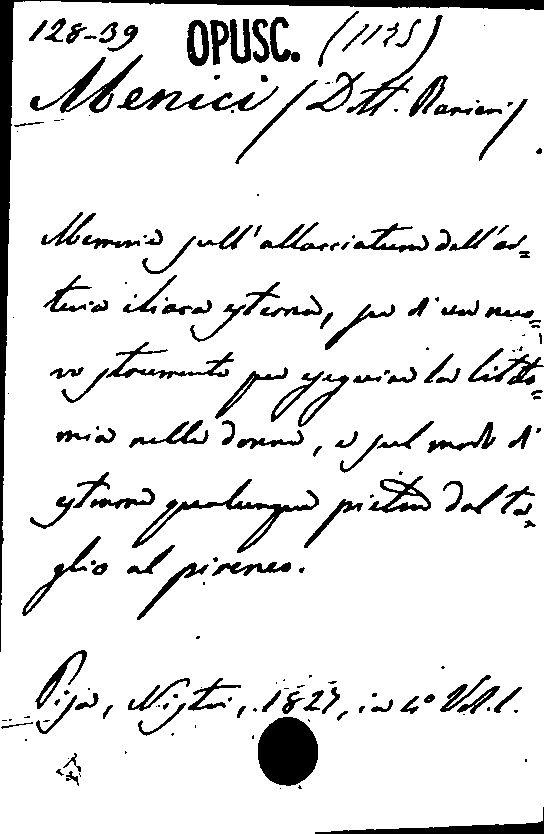 128-39 OPUSC. (1175)
Menici (Dott. Ranieri)
Memoria sull'allacciatura dell'ar=
teria iliaca esterna, su di un nuo=
vo strumento per eseguire la litoto=
mia nelle donne, e sul modo di
estrarre qualunque pietra dal ta=
glio al pireneo.
Pisa, Nistri, 1827, in 4° Vol. 1.